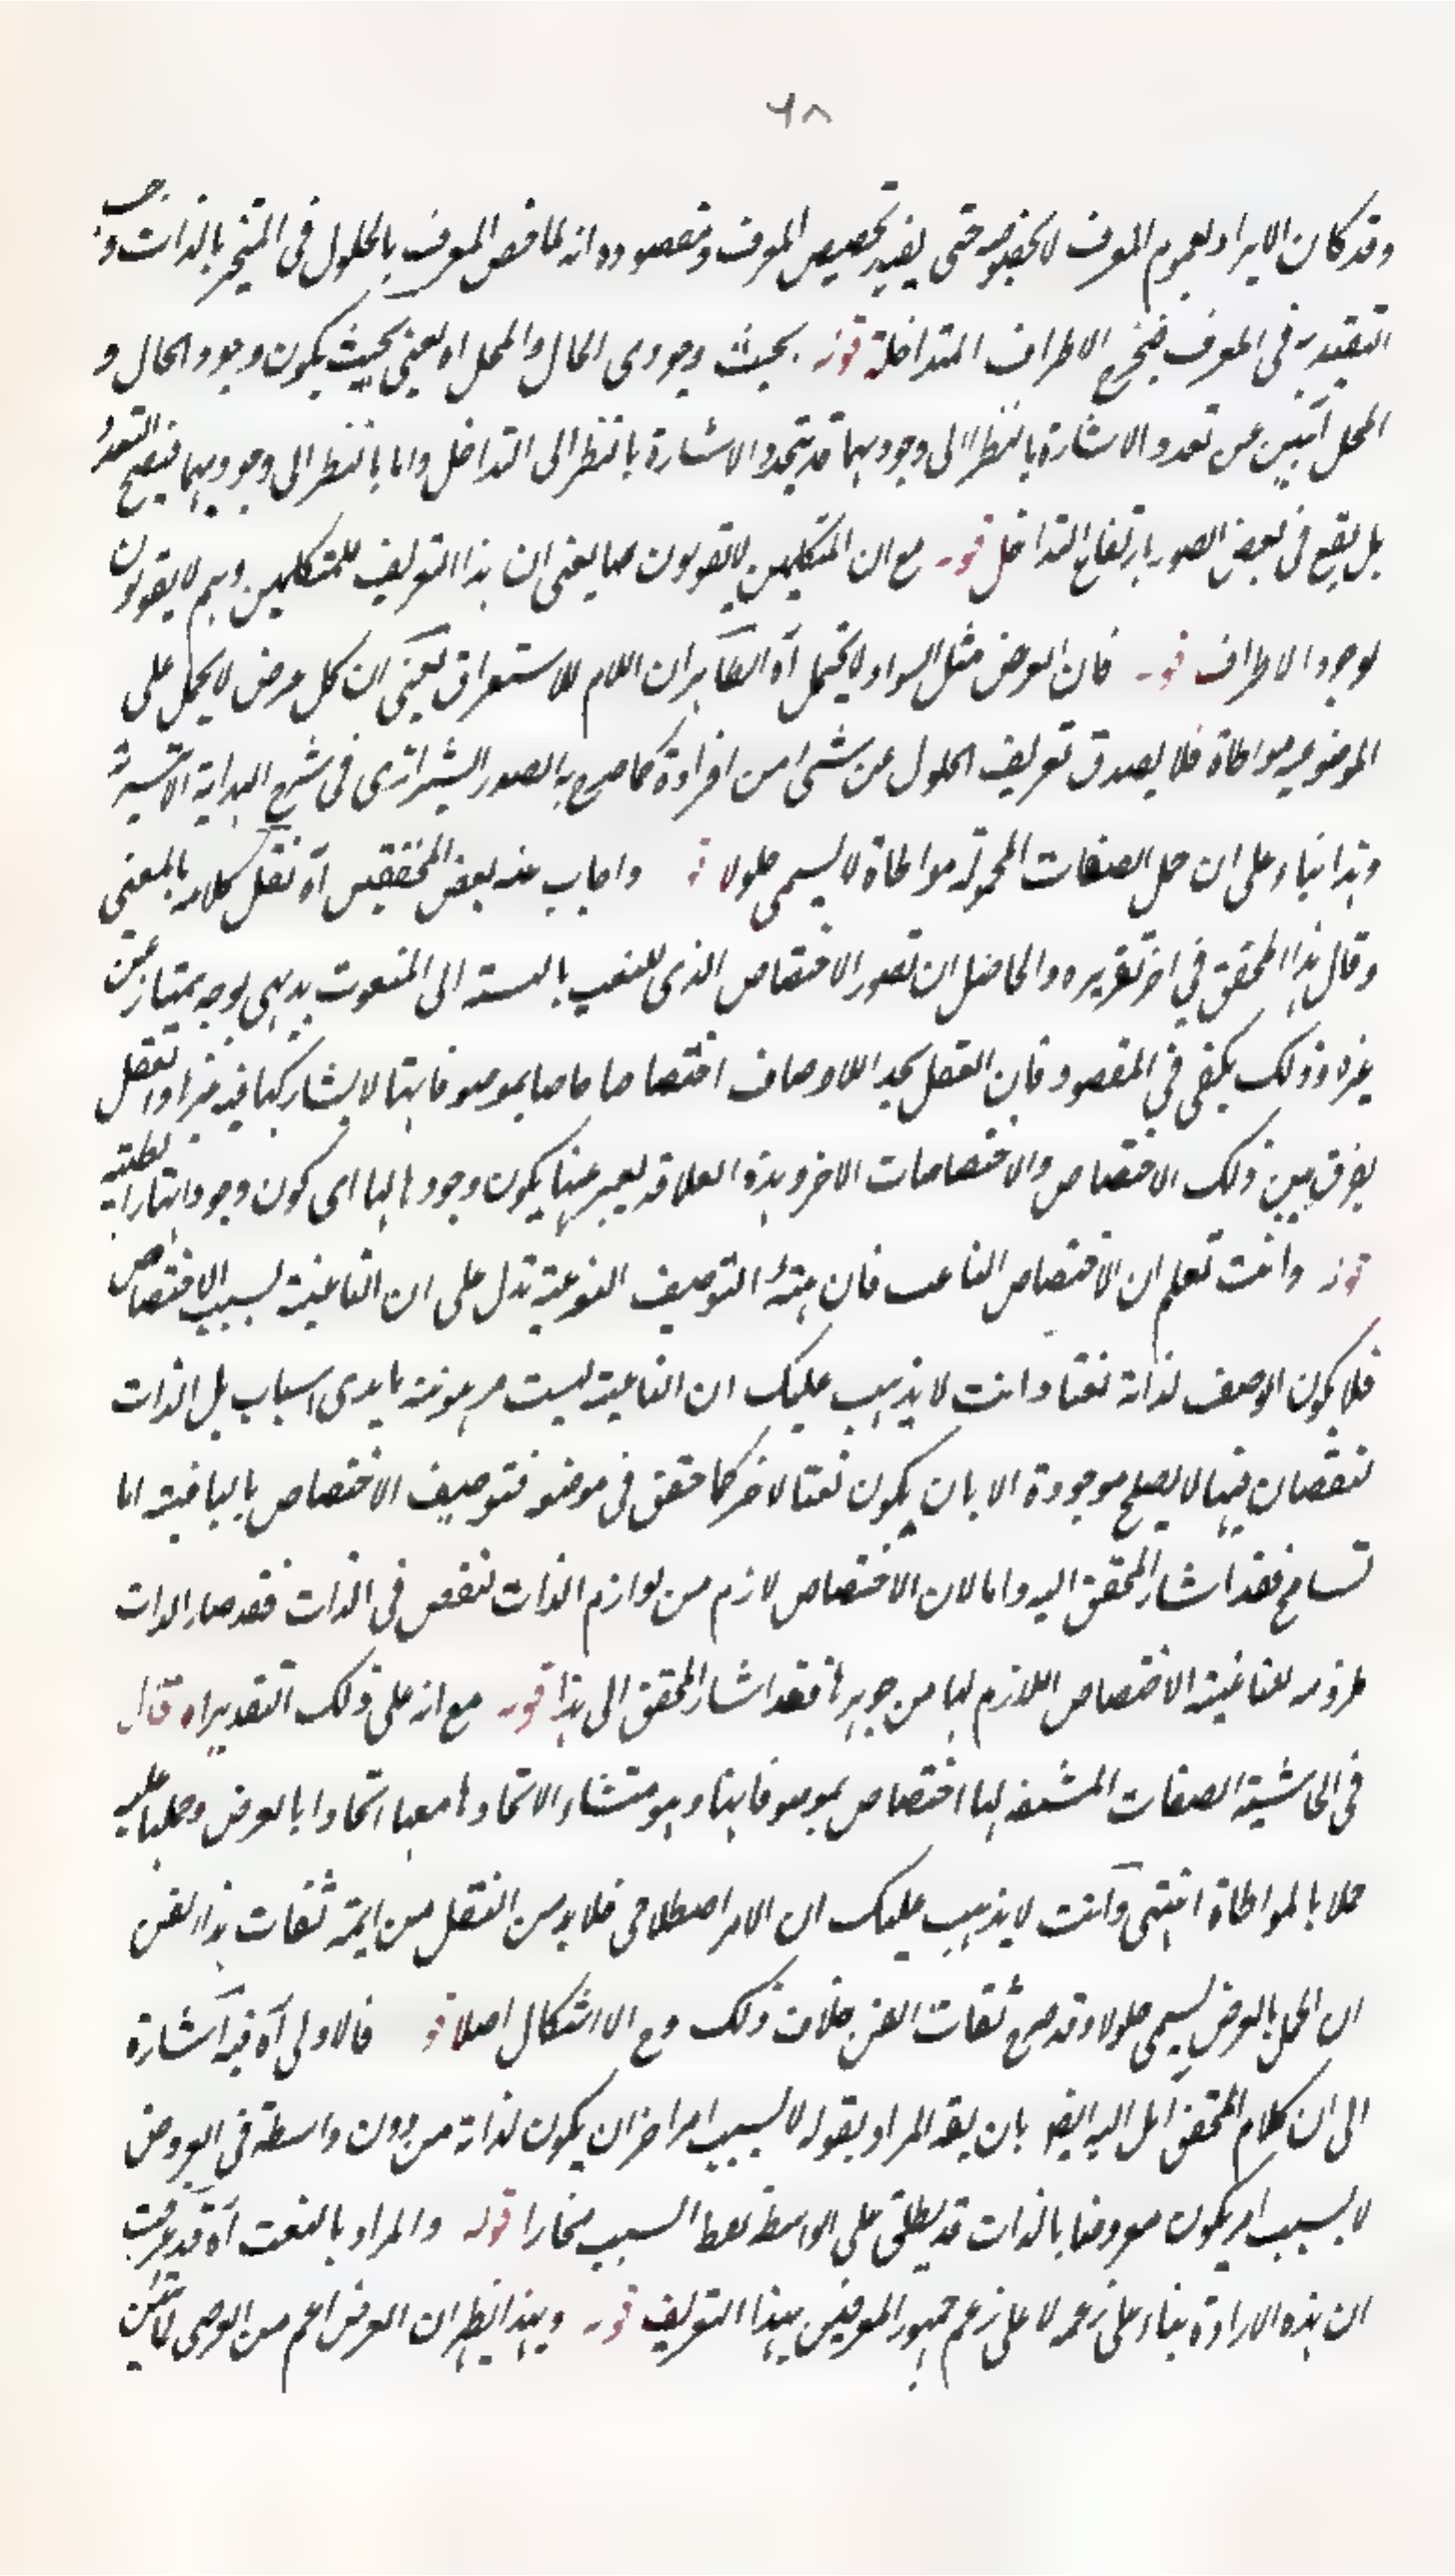 ٦٨
وقد كان الايراد بعموم المعرف لا بخصوصه حتى يفيد تخصيص المعرف ومقصوده انه لما خص المعرف بالحلول في المتحيز بالذات وجب
التقييد به في المعرف فيخرج الاطراف المتداخلة قوله بحيث وجودى الحال والمحل اه يعنى بحيث يكون وجود الحال و
المحل آبيين عن تعدد الاشارة بالنظر الى وجوديهما قد يتحد الاشارة بالنظر الى التداخل واما بالنظر الى وجوديهما فيصح التعدد
بل يقع في بعض الصور بارتفاع التداخل قوله مع ان المتكلمين لا يقولون بها يعنى ان هذا التعريف للمتكلمين وهم لا يقولون
بوجود الاطراف قوله فان العرض مثل السواد لا يحمل آه الظاهر ان اللام للاستغراق يعنى ان كل عرض لا يحمل على
الموضوع مواطاة فلا يصدق تعريف الحلول عن شئ من افراده كما صرح به الصدر الشيرازى في شرح الهداية الاثيرية
وهذا بناء على ان حمل الصفات المحمولة مواطاة لا يسمى حلولا قو واجاب عنه بعض المحققين آه نقل كلامه بالمعنى
وقال هذا المحقق في اخر تقريره والحاصل ان تصور الاختصاص الذى للنعت بالنسبة الى المنعوت بديهى بوجه يمتاز عن
غيره وذلك يكفى في المقصود فان العقل يجد للاوصاف اختصاصا خاصا بموصوفاتها لا يشاركها فيه غيرها والعقل
يفرق بين ذلك الاختصاص والاختصاصات الاخر وهذه العلاقة يعبر عنها بكون وجودها لها اى كون وجوداتها رابطية
قوله وانت تعلم ان الاختصاص الناعت فان هيئة التوصيف النوعية تدل على ان الناعتية بسبب الاختصاص
فلا يكون الوصف لذاته نعتا وانت لا يذهب عليك ان الناعتية ليست مرهونة بايدى اسباب بل الذات
لنقصان فيها لا يصلح موجودة الا بان يكون نعتا لاخر كما حقق في موضعه فتوصيف الاختصاص بالناعتية اما
تسامح فقد اشار المحقق اليه واما لان الاختصاص لازم من لوازم الذات لنقص في الذات فقد صار الذات
ملزومه للناعتية الاختصاص اللازم لها من جوهرها فقد اشار المحقق الى هذا قوله مع انه على ذلك التقدير اه قال
في الحاشية الصفات المشتقة لها اختصاص بموصوفاتها وهو منشاء الاتحادها معها اتحادا بالعرض وحملها عليه
حملا بالمواطاة انتهى وانت لا يذهب عليك ان الامر اصطلاحى فلا بد من النقل من ايمة ثقات هذا الفن
ان الحمل بالعرض يسمى حلولا وقد صرح ثقات الفن بخلاف ذلك وح الا اشكال اصلا قو فالاولى آه فيه اشارة
الى ان كلام المحقق ائل اليه ايضا بان يقه المراد بقوله لا بسبب امر اخر ان يكون لذاته من دون واسطة في العروض
لا بسبب امر يكون معروضا بالذات قد يطلق على الواسطة لفظ السبب مجازا قوله والمراد بالنعت آه قد عرفت
ان هذه الارادة بناء على زعمه لا على زعم جمهور المعرفين بهذا التعريف قوله وبهذا يظهر ان العرض اعم من العرضى